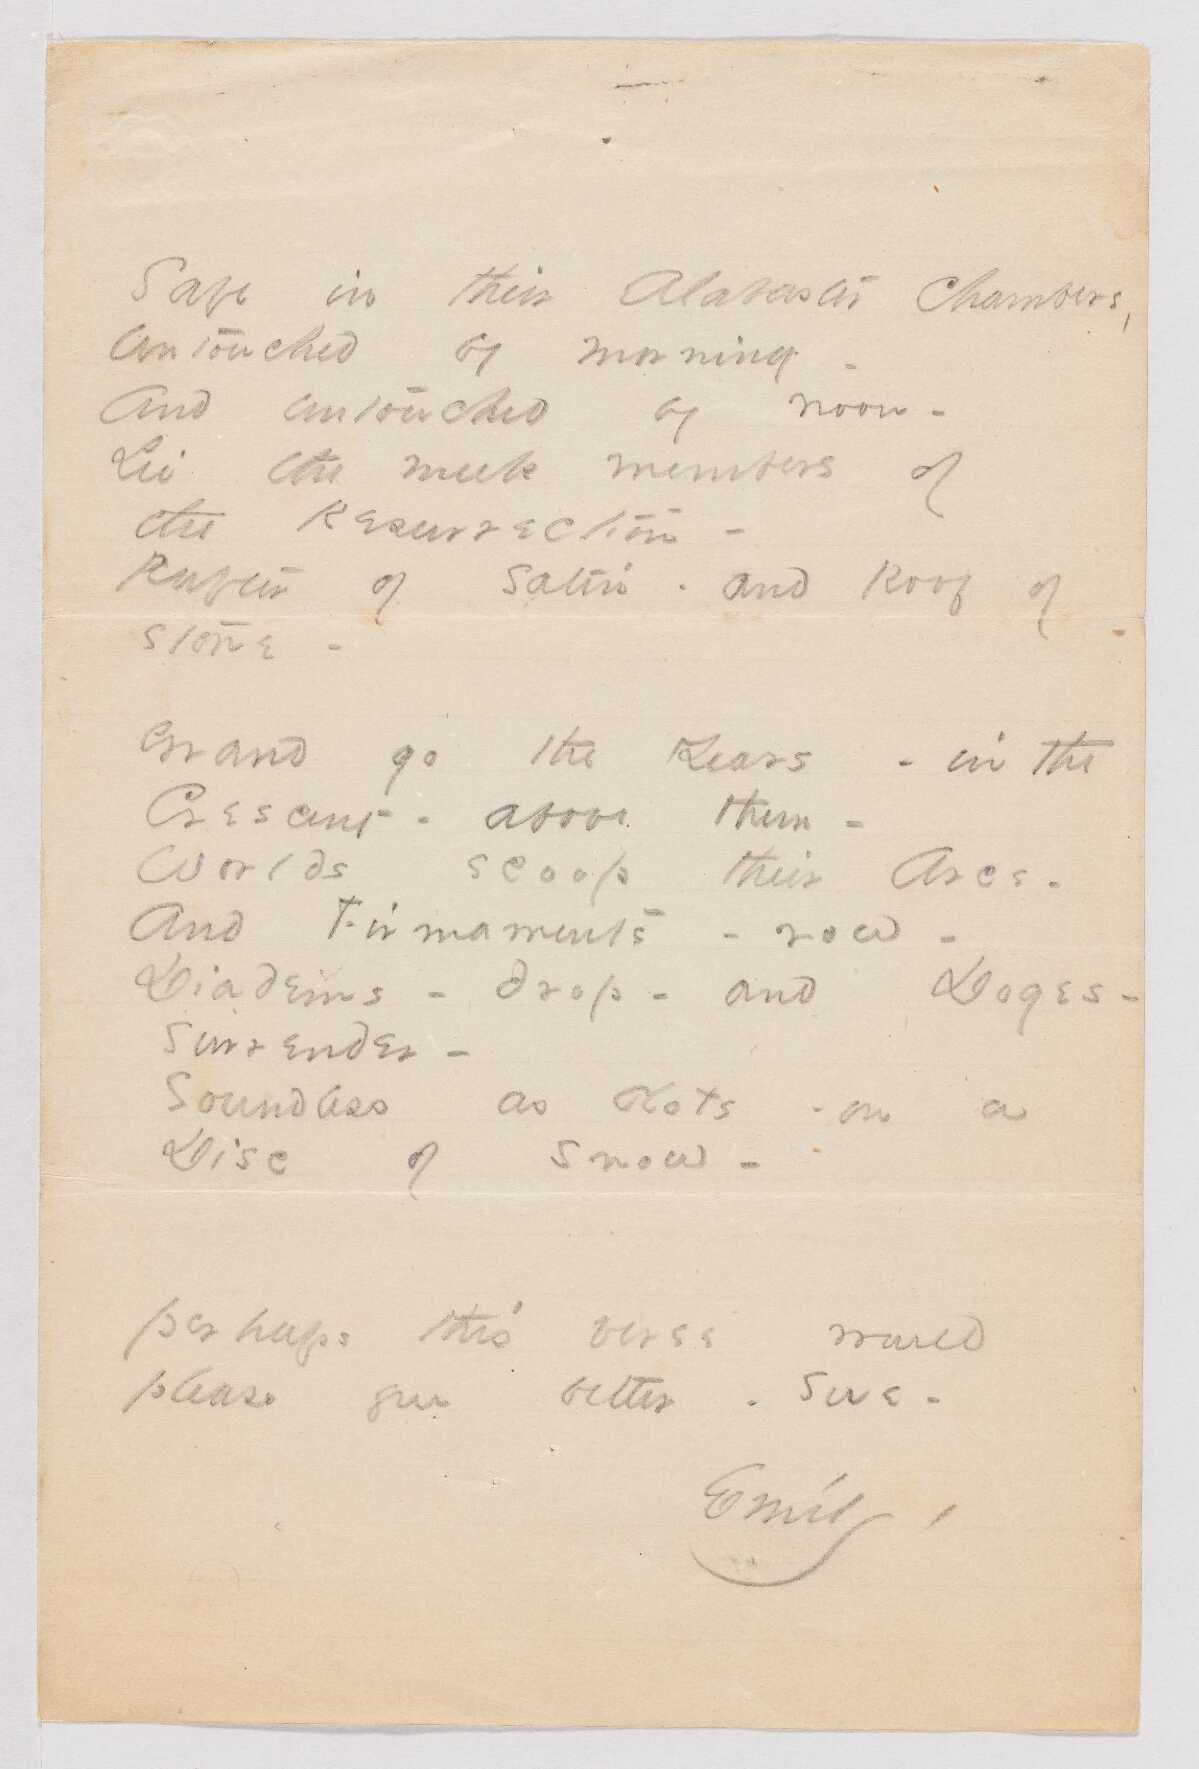 Safe in their Alabaster Chambers,
Untouched by morning -
And untouched by noon -
Lie the meek members of
the Resurrection -
Rafter of Satin - and Roof of
Stone -
Grand go the Years - in the
Crescent - above them -
Worlds scoop their Arcs -
And Firmaments - row -
Diadems - drop - and Doges -
Surrender -
Soundless as dots - on a
Disc of Snow -
Perhaps this verse would
please you better - Sue -
Emily -